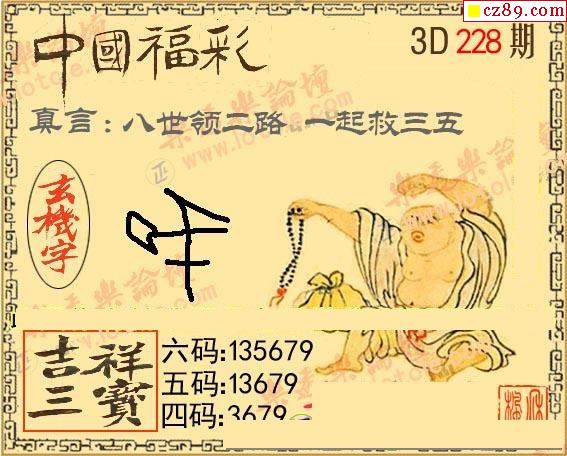 cz89.com
中國福彩
3D 228 期
真言:八世领二路 一起救三五
玄機字
吉祥三寶
六码:135679
五码:13679
四码:3679